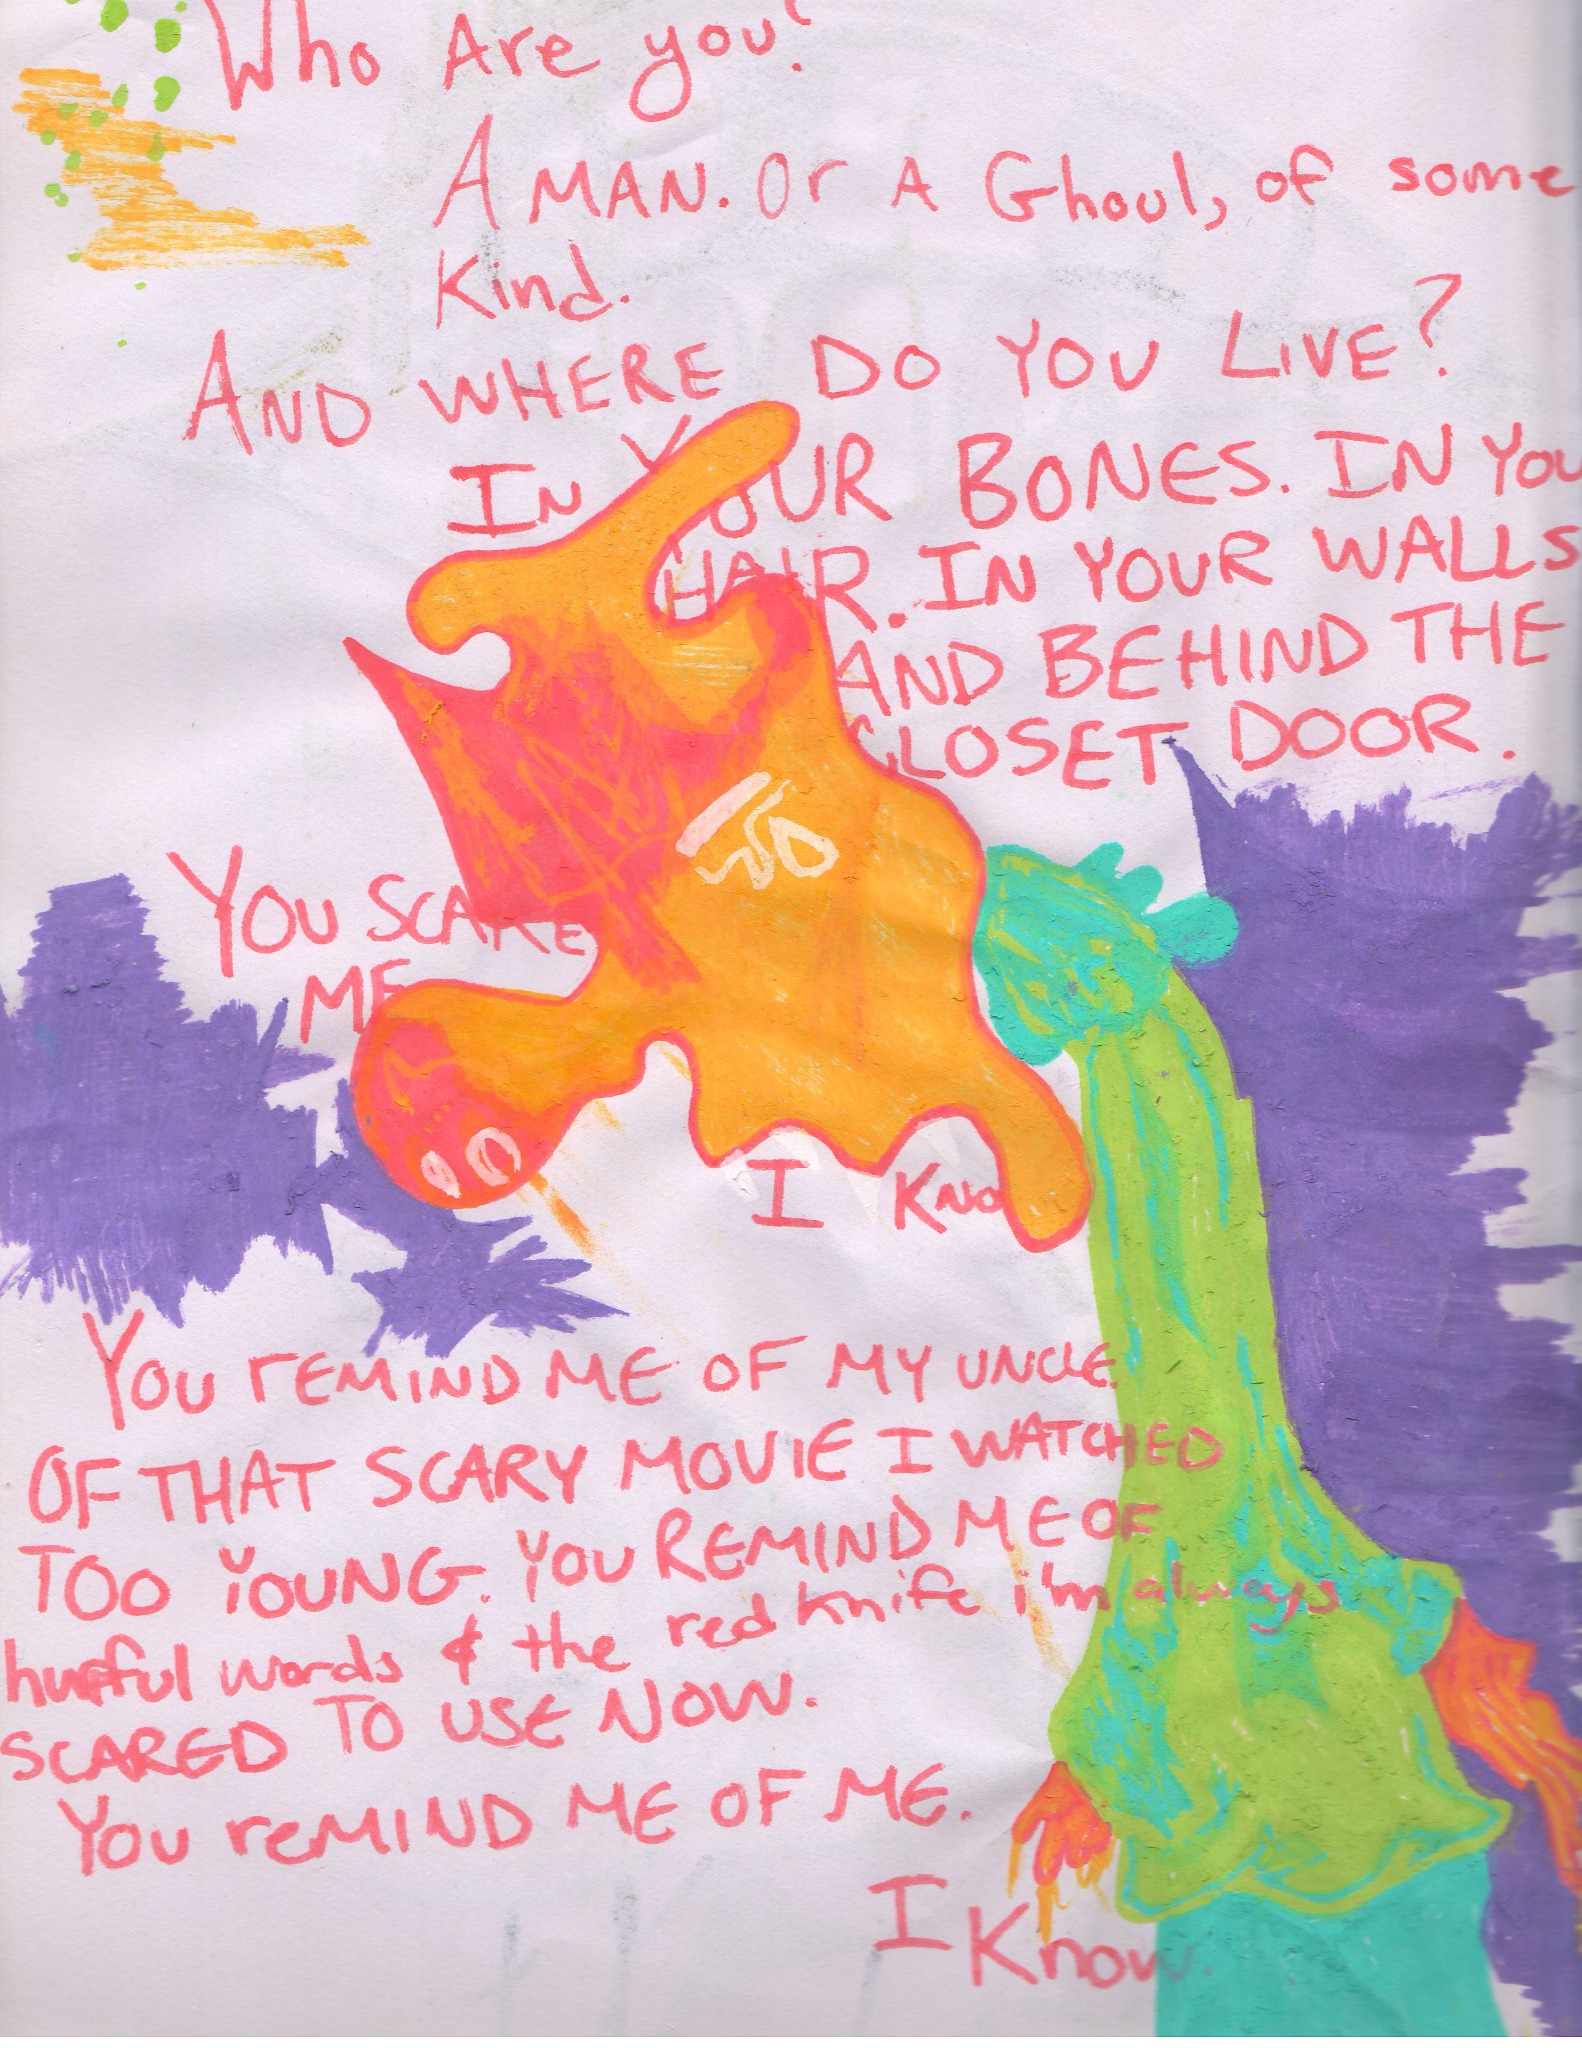 Who Are you?
A MAN. Or A Ghoul, of some
Kind.
AND WHERE DO YOU LIVE?
IN YOUR BONES. IN YOU
HAIR. IN YOUR WALLS
AND BEHIND THE
CLOSET DOOR.
YOU SCARE
ME
I KNO
YOU rEMIND ME OF MY UNCLE.
OF THAT SCARY MOVIE I WATCHED
TOO YOUNG. YOU REMIND ME OF
hurtful words & the red knife i'm always
SCARED TO USE NOW.
YOU reMIND ME OF ME.
I Know.